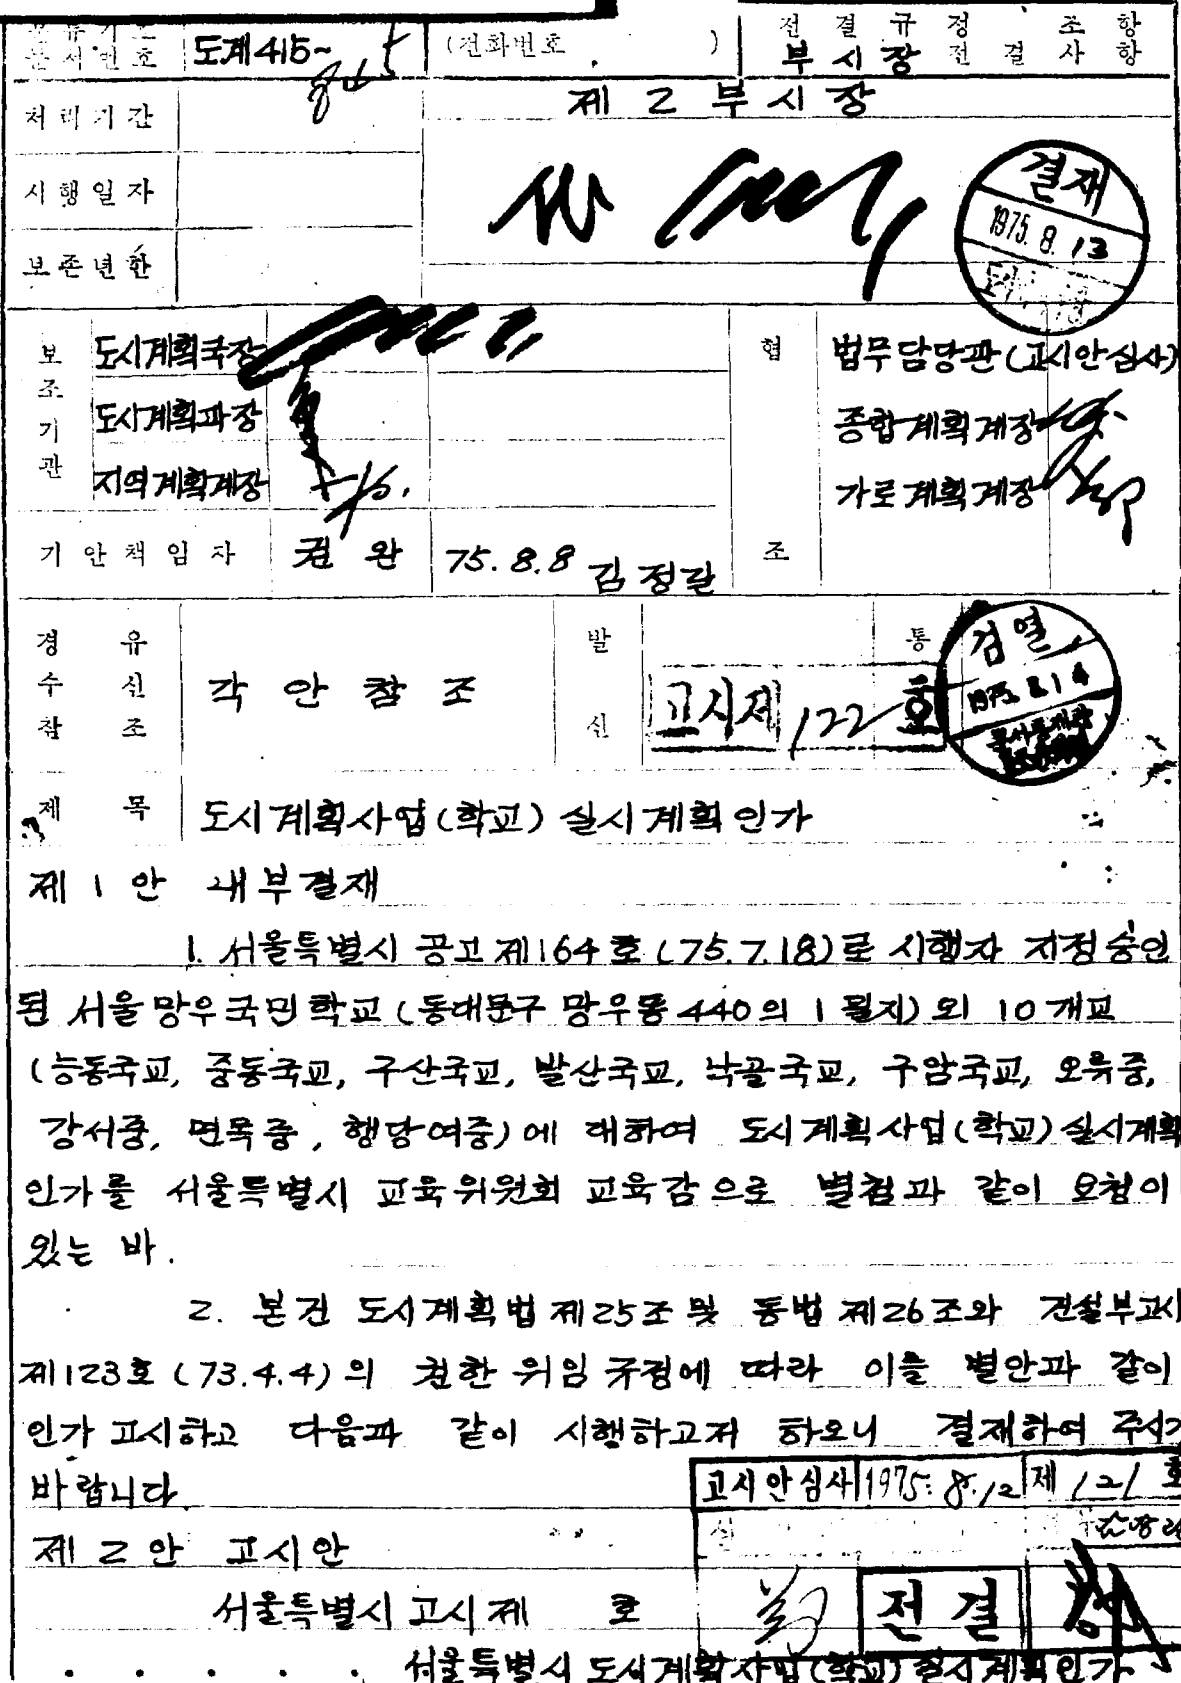 분류기호
문서번호 도계415~
(전화번호 )
전결규정 조항
부시장 전결사항
처리기간
제 2 부시장
시행일자
보존년한
결재
1975. 8. 13
보조기관
도시계획국장
도시계획과장
지역계획계장
협조
법무담당관(고시안심사)
종합계획계장
가로계획계장
기안책임자 권완 75.8.8
경유
수신
참조
각 안 참 조
발신
통
고시제 122 호
검열
1975. 8. 14
제목 도시계획사업(학교) 실시계획인가
제 1 안 내부결재
1. 서울특별시 공고 제164호 (75.7.18)로 시행자 지정승인
된 서울망우국민학교 (동대문구 망우동 440의 1 필지) 외 10개교
(능동국교, 중동국교, 구산국교, 발산국교, 낙골국교, 구암국교, 오류중,
강서중, 면목중, 행당여중)에 대하여 도시계획사업(학교) 실시계획
인가를 서울특별시 교육위원회 교육감으로 별첨과 같이 요청이
있는 바.
2. 본건 도시계획법 제25조 및 동법 제26조와 건설부고시
제123호 (73.4.4)의 권한 위임 규정에 따라 이를 별안과 같이
인가 고시하고 다음과 같이 시행하고저 하오니 결재하여 주시기
바랍니다.
고시안심사 1975. 8. 12 제 121 호
제 2 안 고시안
서울특별시 고시 제 호
전결
서울특별시 도시계획사업(학교) 실시계획인가